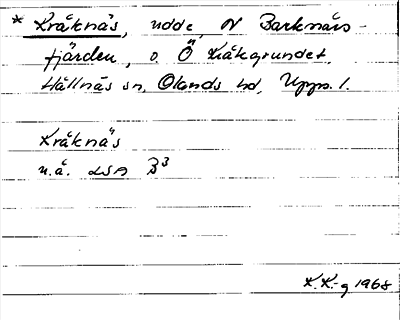 * Kråknäs, udde, N Barknäs-
fjärden, o. Ö Kråkgrundet,
Hållnäs sn, Olands hd, Upps. l.
Kråknäs
u.å. LSA B3
K.K-g 1968